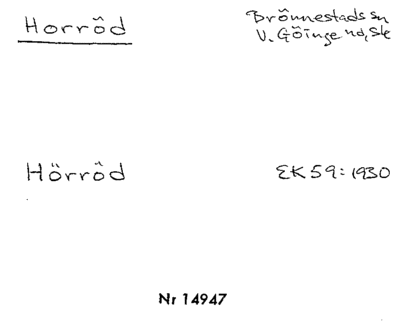 Horröd
Brönnestads sn
V. Göinge hd, Sk
Hörröd
EK 59: 1930
Nr 14947